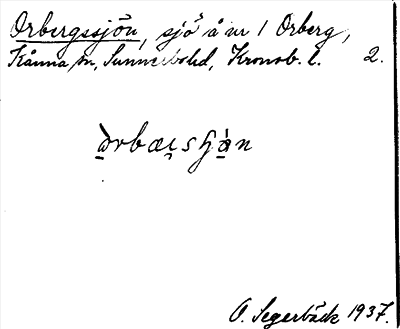 Orbergssjön, sjö å nr 1 Orberg,
Kånna sn, Sunnerbohd, Kronob. l. 2.
O. Segerbäck 1937.